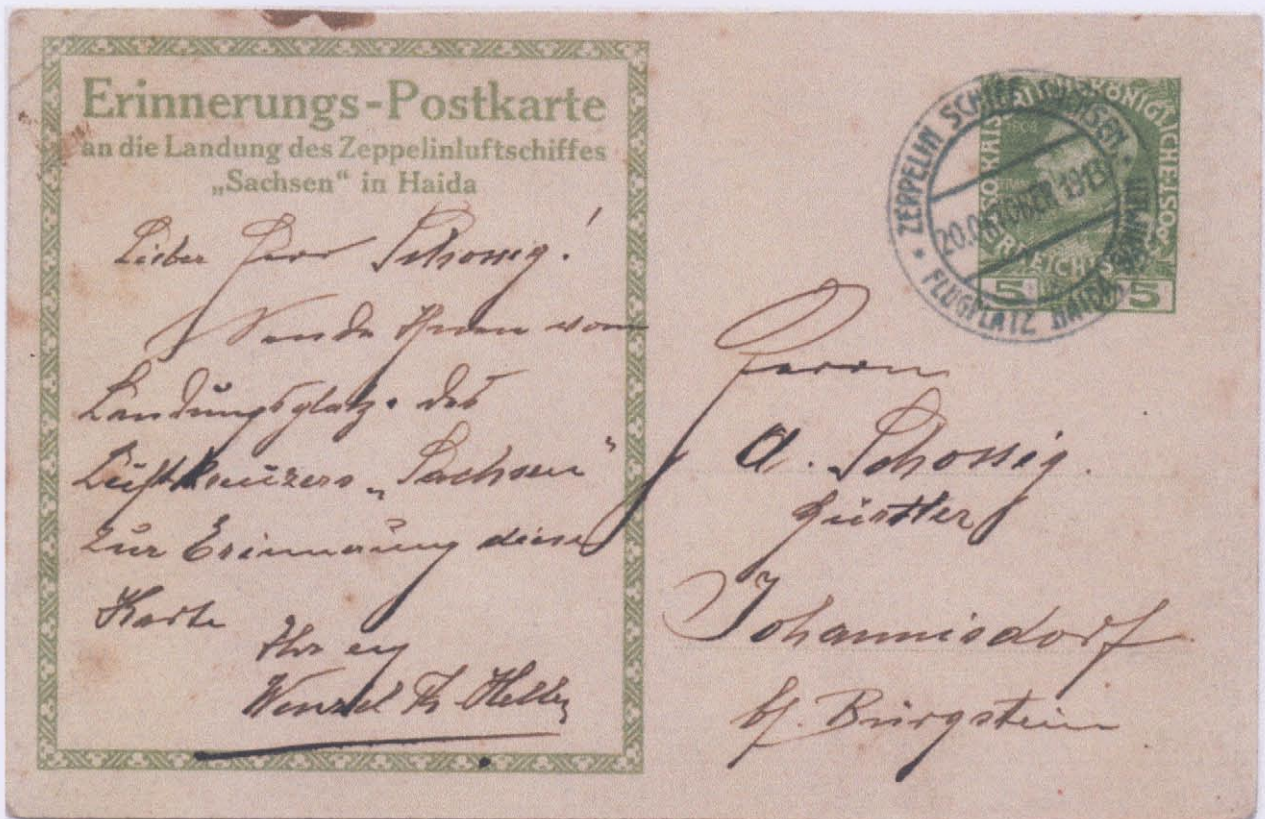 Erinnerungs-Postkarte
an die Landung des Zeppelinluftschiffes
„Sachsen“ in Haida
Lieber Herr Schossig!
Sende Ihnen vom
Landungsplatz des
Luftkreuzers „Sachsen“
zur Erinnerung diese
Karte
Ihr
Wenzel Heller
ZEPPELIN SCHIFF SACHSEN
20. OKTOBER 1913
FLUGPLATZ HAIDA BÖHMEN
KAISERLICHE KÖNIGLICHE
5 5
Herrn
A. Schossig.
Gürtler
Johannisdorf
b/. Bürgstein